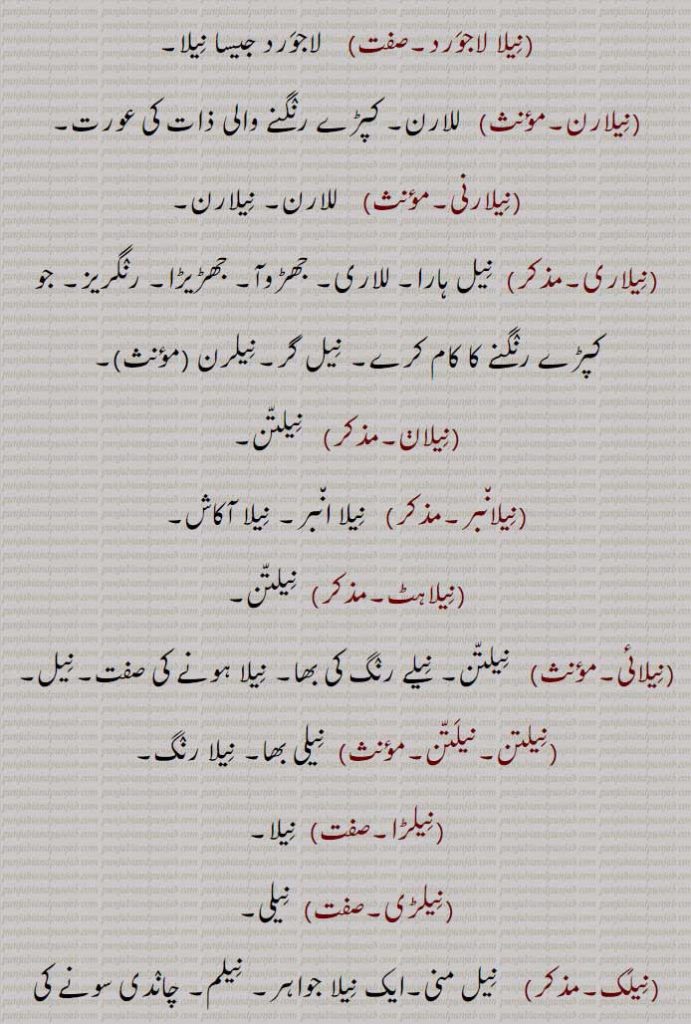 (نِیلا لاجوَرد۔صفت) لاجوَرد جیسا نِیلا۔
(نِیلارن۔مؤنث) للارن۔ کپڑے رنگنے والی ذات کی عورت۔
(نِیلارنی۔مؤنث) للارن۔ نِیلارن۔
(نِیلاری۔مذکر) نِیل ہارا۔ للاری۔ جھڑوآ۔ جھڑیڑا۔ رنگریز۔ جو
کپڑے رنگنے کا کام کرے۔ نِیل گر۔نِیلرن (مؤنث)۔
(نِیلان۔مذکر) نِیلتّن۔
(نِیلانّبر۔مذکر) نِیلا انّبر۔ نِیلا آکاش۔
(نِیلاہٹ۔مذکر) نِیلتّن۔
(نِیلائی۔مؤنث) نِیلتّن۔ نِیلے رنگ کی بھا۔ نِیلا ہونے کی صفت۔نِیل۔
(نِیلتن۔نیلَتّن۔مؤنث) نِیلی بھا۔ نِیلا رنگ۔
(نِیلڑا۔صفت) نِیلا۔
(نِیلڑی۔صفت) نِیلی۔
(نِیلک۔مذکر) نِیل منی۔ایک نِیلا جواہر۔ نِیلم۔ چاندی سونے کی